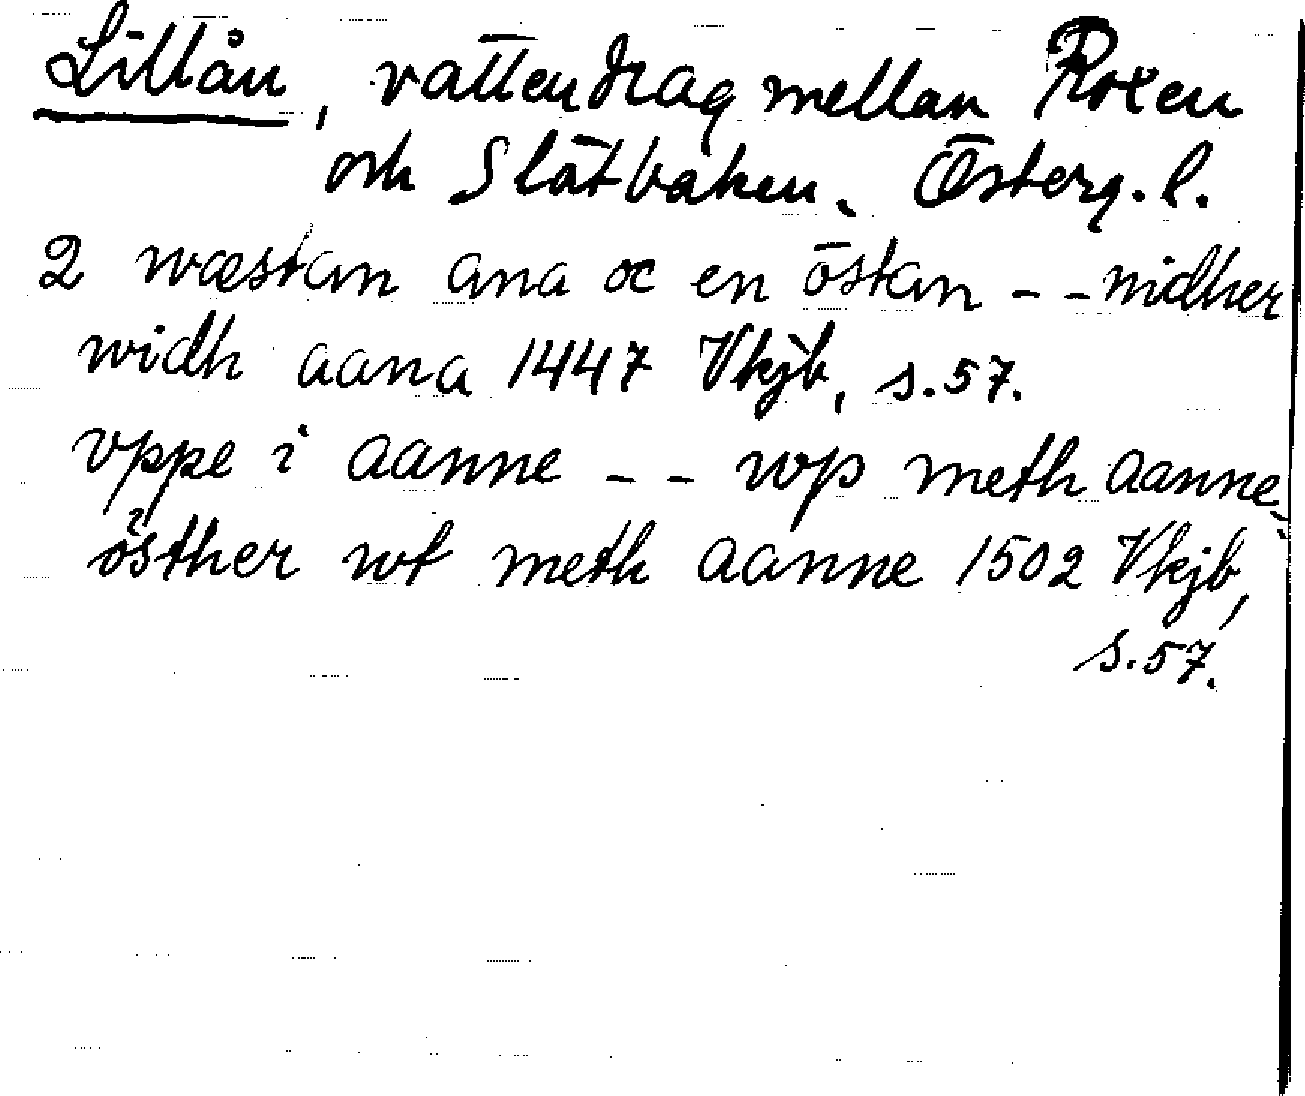 Lillån, vattendrag mellan Roxen
och Slätbaken. Österg.l.
2 wæstan ana oc en östan - - nidher
widh aana 1447 Vkjb, s.57.
vppe i aanne - - wp meth aanne,
östher wt meth aanne 1502 Vkjb,
s.57.